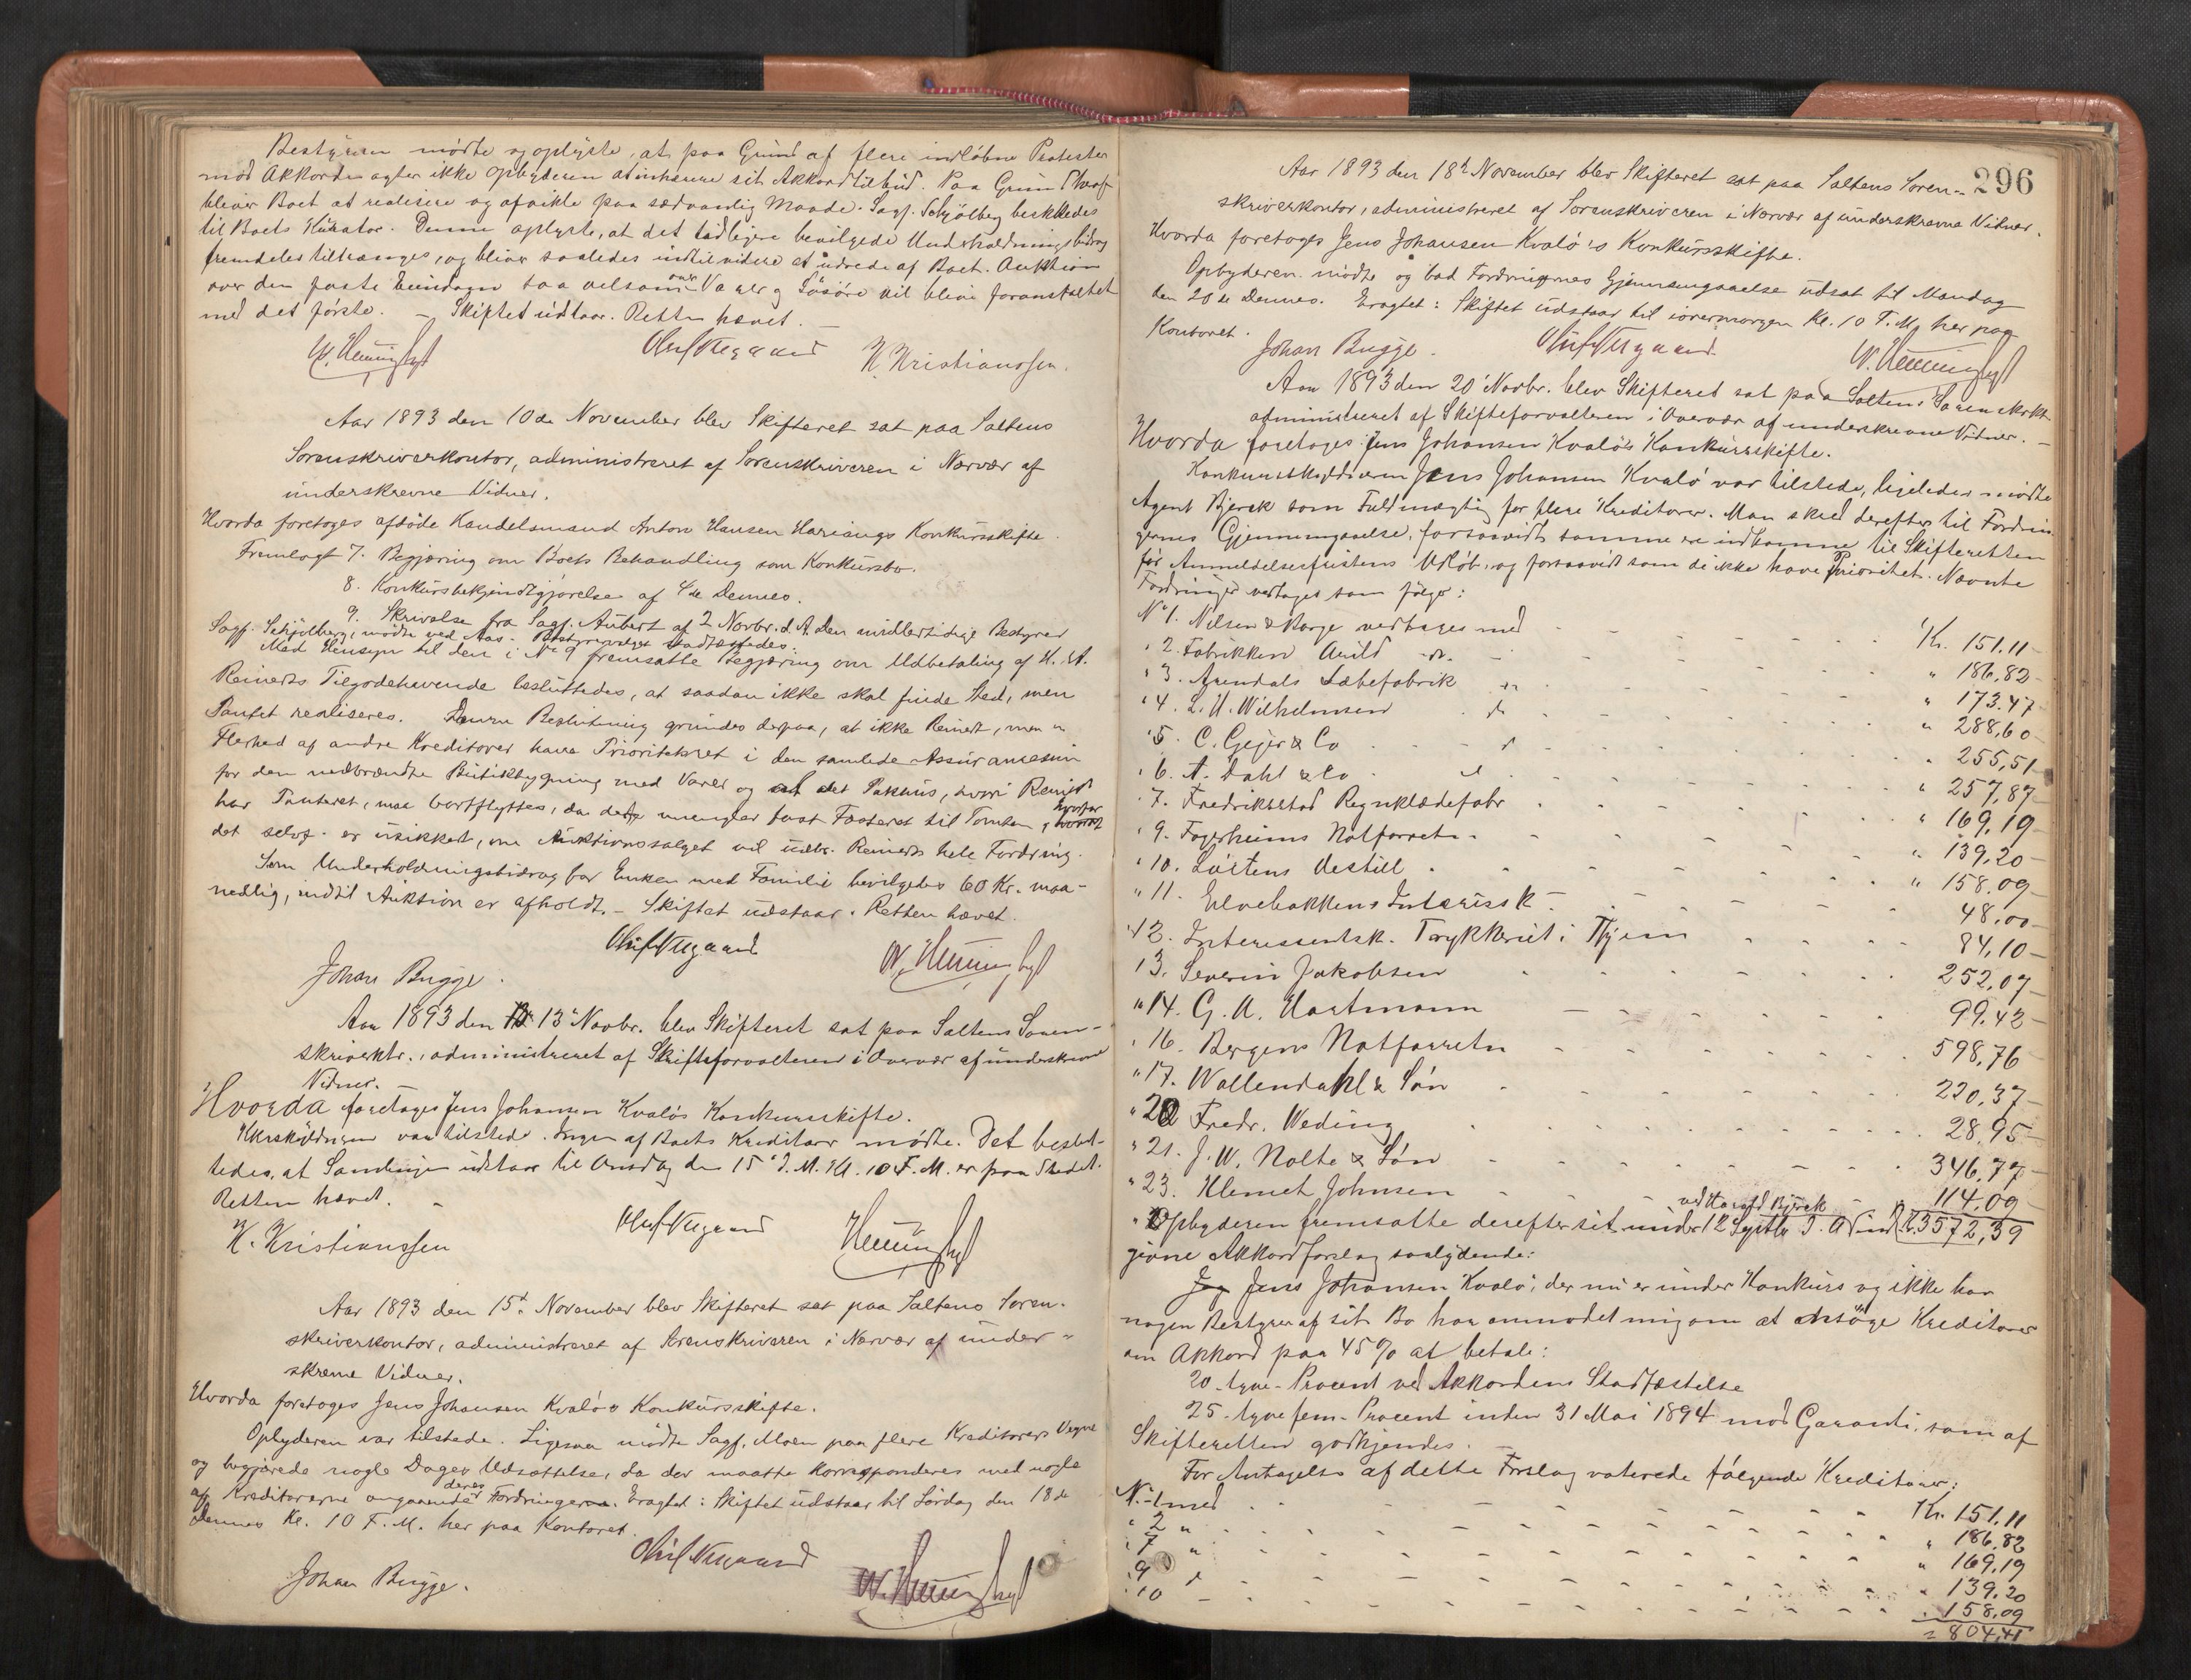 Bestyreren mødte og oplyste, at paa Grund af flere indløbne Protester
mod Akkorden agter ikke Opbyderen at inhærere sit Akkordtilbud. Paa Grund heraf
bliver Boet at realisere og afvikle paa sædvanlig Maade. Sagf. Schjølberg beskikkedes
til Boets Kurator. Denne oplyste, at det tidligere bevilgede Underholdningsbidrag
fremdeles tiltrænges, og bliver saaledes indtil videre at udrede af Boet. Auktion
over den faste Eiendom saavelsom over Varer og Løsøre vil blive foranstaltet
med det første. — Skiftet udstaar. Retten hævet. —
W. Henning Olaf Nergaard K. Kristianssen.
Aar 1893 den 10de November blev Skifteret sat paa Saltens
Sorenskriverkontor, administreret af Sorenskriveren i Nærvær af
underskrevne Vidner.
Hvorda foretoges afdøde Handelsmand Anton Hansen Hariangs Konkursskifte.
Fremlagt 7. Begjæring om Boets Behandling som Konkursbo.
8. Konkursbekjendtgjørelse af 4de Dennes.
9. Skrivelse fra Sagf. Aubert af 2 Novbr. d. A. Den midlertidige Bestyrer
Sagf. Schjølberg, mødte ved Aas. Bestyrervalget stadfæstedes.
Med Hensyn til den i No 9 fremsatte Begjæring om Udbetaling af H. A.
Reinerts Tilgodehavende besluttedes, at saadan ikke skal finde Sted, men
Pantet realiseres. Denne Beslutning grundes derpaa, at ikke Reinert, men en
Flerhed af andre Kreditorer have Prioritetsret i den samlede Assurancesum
for den nedbrændte Butikbygning med Varer og at det Pakhus, hvori Reinert
har Panteret, maa bortflyttes, da der mangler fast Fæsteret til Tomten, hvorfor
det selvf. er usikkert, om Auktionssalget vil udbr. Reinerts hele Fordring.
Som Underholdningsbidrag for Enken med Familie bevilgedes 60 Kr. maa-
nedlig, indtil Auktion er afholdt. — Skiftet udstaar. Retten hævet.
Johan Bugge. Olaf Nergaard W. Henning
Aar 1893 den 13' Novbr. blev Skifteret sat paa Saltens Soren-
skriverktr., administreret af Skifteforvalteren i Overvær af underskrevne
Vidner.
Hvorda foretoges Jens Johansen Kvaløs Konkursskifte.
Kkrskyldneren var tilstede. Ingen af Boets Kreditorer mødte. Det beslut-
tedes, at Samlingen udstaar til Onsdag den 15' d. M. Kl. 10 F. M. er paa Stedet.
Retten hævet. —
K. Kristianssen Olaf Nergaard Henning
Aar 1893 den 15d. November blev Skifteret sat paa Saltens Soren-
skriverkontor, administreret af Sorenskriveren i Nærvær af under-
skrevne Vidner.
Hvorda foretoges Jens Johansen Kvaløs Konkursskifte.
Opbyderen var tilstede. Ligesaa mødte Sagf. Moen paa flere Kreditorers Vegne
og begjærede nogle Dages Udsættelse, da der maatte korresponderes med nogle
af Kreditorerne angaaende deres Fordringer. Eragtet: Skiftet udstaar til Lørdag den 18de
Dennes Kl. 10 F. M. her paa Kontoret.
Johan Bugge. Olaf Nergaard W. Henning
296
Aar 1893 den 18d November blev Skifteret sat paa Saltens Soren-
skriverkontor, administreret af Sorenskriveren i Nærvær af underskrevne Vidner.
Hvorda foretoges Jens Johansen Kvaløs Konkursskifte.
Opbyderen mødte og bad Fordringernes Gjennemgaaelse udsat til Mandag
den 20de Dennes. Eragtet: Skiftet udstaar til iovermorgen Kl. 10 F. M. her paa
Kontoret.
Johan Bugge. Olaf Nergaard. W. Henning
Aar 1893 den 20' Novbr. blev Skifteret sat paa Saltens Sorenskrktr
administreret af Skifteforvalteren i Overvær af underskrevne Vidner. —
Hvorda foretoges: Jens Johansen Kvaløs Konkursskifte.
Konkursskyldneren Jens Johansen Kvalø var tilstede, ligeledes mødte
Agent Bjerck som Fuldmægtig for flere Kreditorer. Man skred derefter til Fordrin
gernes Gjennemgaaelse, forsaavidt samme ere indkomne til Skifteretten
før Anmeldelsesfristens Udløb, og forsaavidt som de ikke have Prioritet. Nævnte
Fordringer vedtoges som følger:
No 1. Nilsen & Borge vedtoges med - - - Kr. 151.11
" 2. Fabrikken Arild do. - - - " 186,82
" 3. Arendals Sæbefabrik do - - - " 173.47
" 4. L. H. Wilhelmsen do - - - " 288,60
" 5. C. Geijer & Co - - - " 255,51
" 6. A. Dahl & Co - - - " 257,87
" 7. Fredriksstad Regnklædefabr - - - " 169,19
" 9. Fagerheims Notforretn. - - - " 139,20
" 10. Løitens Destill - - - " 158.09
" 11. Elvebakkens Interessk - - - 48.00
" 12. Interessentsk. Trykkeriet i Thjem - - - 84,10
13. Severin Jakobsen - - - 252,07
" 14. G. A. Hartmann - - - 99.42
" 16. Bergens Notforretn - - - 598,76
" 17. Wallendahl & Søn - - - 220,37
" 20 Fredr. Weding - - - 28,95
" 21. J. W. Nolte & Søn - - - 346,77
" 23. Klemet Johnsen - - - 114,09
Kr. 3572,39
Opbyderen fremsatte derefter sit under 12 Septbr d. A. ved Harald Bjerck ind
givne Akkordforslag saalydende:
Jens Johansen Kvalø, der nu er under Konkurs og ikke har
nogen Bestyrer af sit Bo har anmodet mig om at ansøge Kreditorer
om Akkord paa 45% at betale:
20 - tyve - Procent ved Akkordens Stadfæstelse
25 - tyve fem - Procent inden 31 Mai 1894 mod Garanti, som af
Skifteretten godkjendes. —
For Antagelse af dette Forslag voterede følgende Kreditorer:
No 1 med - - - Kr. 151.11
" 2 " - - - " 186,82
" 7 " - - - " 169,19
" 9 " - - - " 139,20
" 10 - - - " 158,09
= 804,41